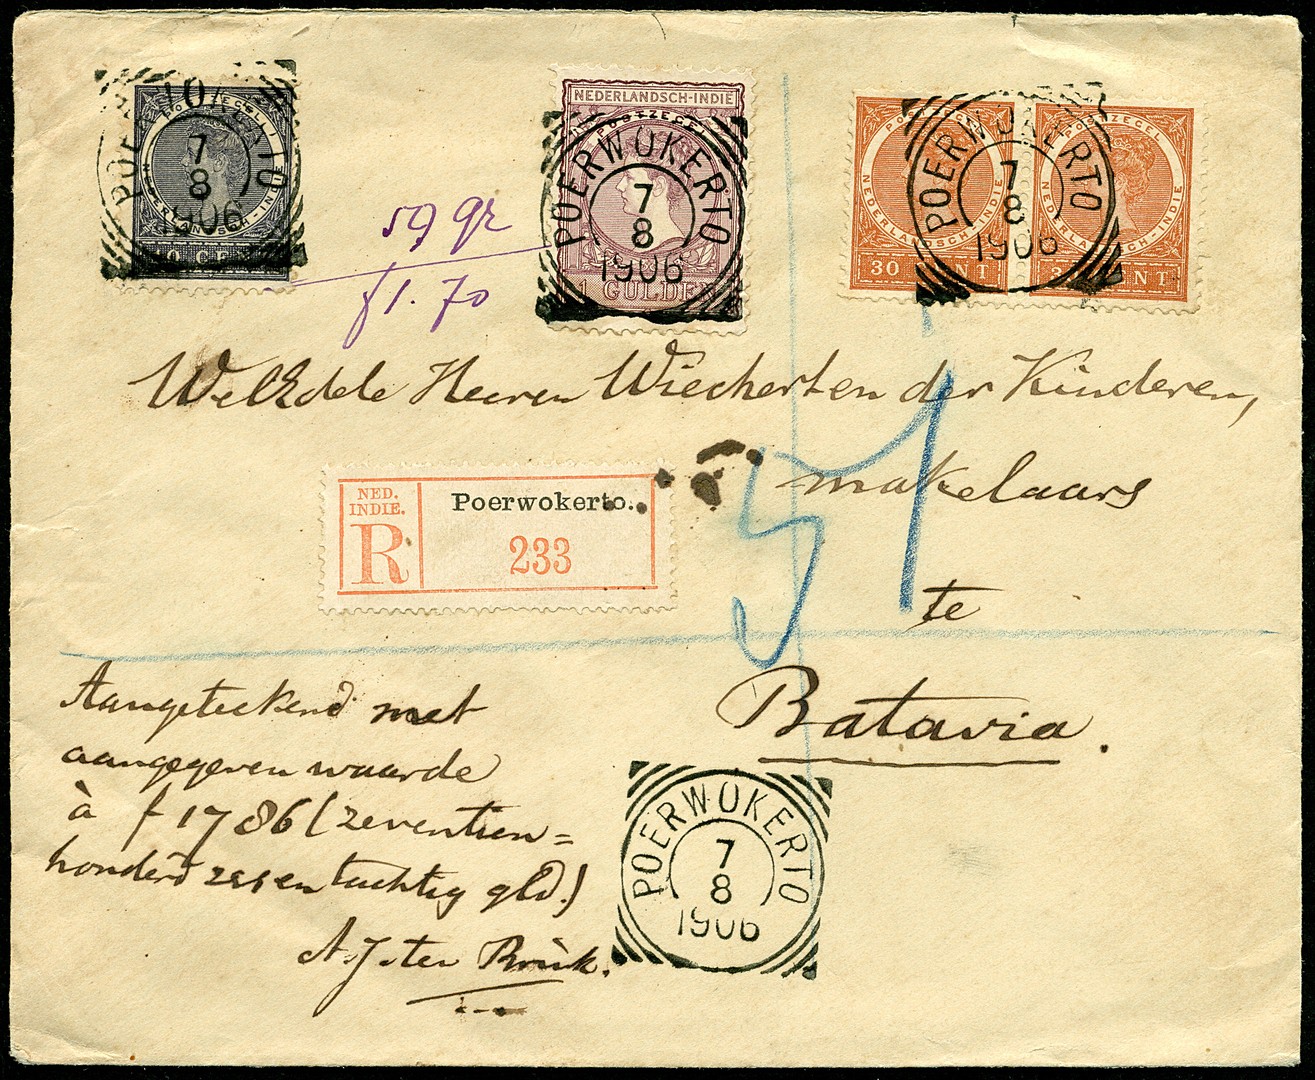 POERWOKERTO
7
8
1906
POSTZEGEL
10 CENT
59 gr
f 1.70
NEDERLANDSCH-INDIE
POSTZEGEL
1 GULDEN
POERWOKERTO
7
8
1906
POSTZEGEL
NEDERLANDSCH-INDIE
30 CENT
POSTZEGEL
NEDERLANDSCH-INDIE
30 CENT
POERWOKERTO
7
8
1906
WelEdele Heeren Wiecherten der Kinderen,
makelaars
51
NED.
INDIE.
R
Poerwokerto.
233
te
Batavia.
Aangeteekend met
aangegeven waarde
à f 1786 (zeventien=
honderd zes en tachtig gld.)
A.J. ten Brink.
POERWOKERTO
7
8
1906